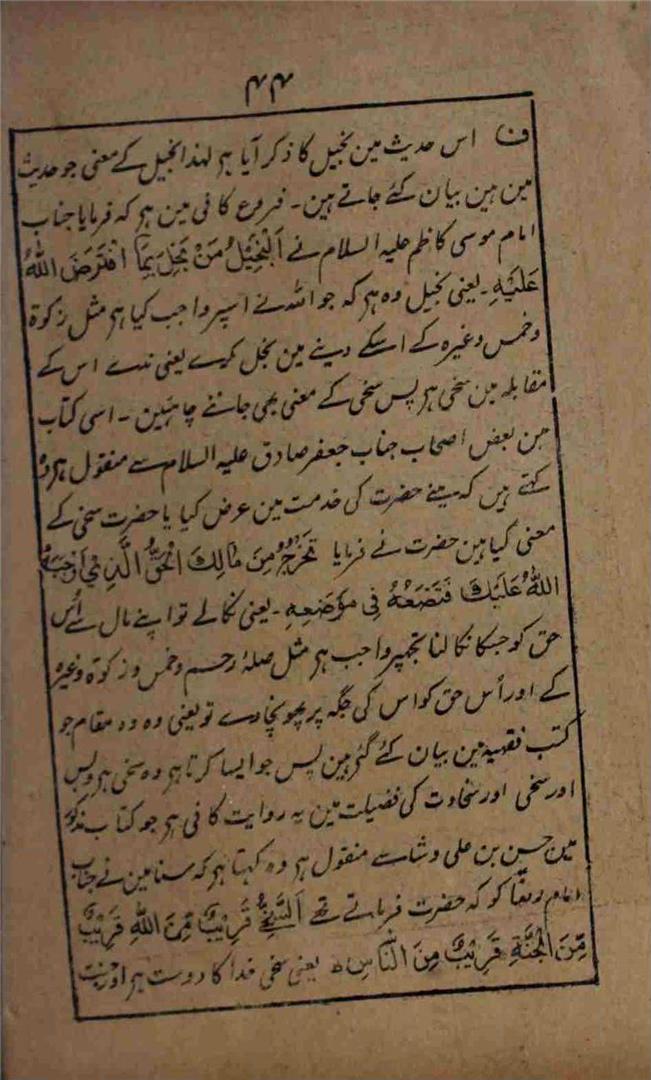 ۴۴
ف اس حدیث مین بخیل کا ذکر آیا ہر لہذا بخیل کے معنی جو حدیث
مین ہین بیان کئے جاتے ہین ۔ فروع کافی مین ہر کہ فرمایا جناب
امام موسی کاظم علیہ السلام نے اَلْبَخِیْلُ مَنْ بَخِلَ بِمَا افْتَرَضَ اللهُ
عَلَیْهِ ۔ یعنی بخیل وہ ہر کہ جو اللہ نے اسپر واجب کیا ہر مثل زکوة
و خمس وغیرہ کے اسکے دینے مین بخل کرے یعنی ندے اس کے
مقابلہ مین سخی ہر پس سخی کے معنی بھی جاننے چاہئین ۔ اسی کتاب
مین بعض اصحاب جناب جعفر صادق علیہ السلام سے منقول ہر وہ
کہتے ہیں کہ مینے حضرت کی خدمت مین عرض کیا یا حضرت سخی کے
معنی کیا ہین حضرت نے فرمایا تَخْرُجُ مِنَ مَالِكَ الْحَقُّ الَّذِیْ اَوْجَبَهُ
اللهُ عَلَیْكَ فَتَضَعُهُ فِیْ مَوْضَعِهِ ۔ یعنی نکالے تو اپنے مال سے اُس
حق کو جسکا نکالنا تجھپر واجب ہر مثل صلۂ رحم و خمس و زکوة وغیرہ
کے اور اُس حق کو اس کی جگہ پر پہونچا دے تو یعنی وہ وہ مقام جو
کتب فقہیہ مین بیان کئے گئے ہین پس جو ایسا کرتا ہر وہ سخی ہر و بس
اور سخی اور سخاوت کی فضیلت مین یہ روایت کافی ہر جو کتاب مذکور
مین حسن بن علی وشا سے منقول ہر وہ کہتا ہر کہ سنا مین نے جناب
امام رضا کو کہ حضرت فرماتے تھے اَلسَّخِیُّ قَرِیْبٌ مِّنَ اللهِ قَرِیْبٌ
مِّنَ الْجَنَّةِ قَرِیْبٌ مِنَ النَّاسِ یعنی سخی خدا کا دوست ہر اور جنت